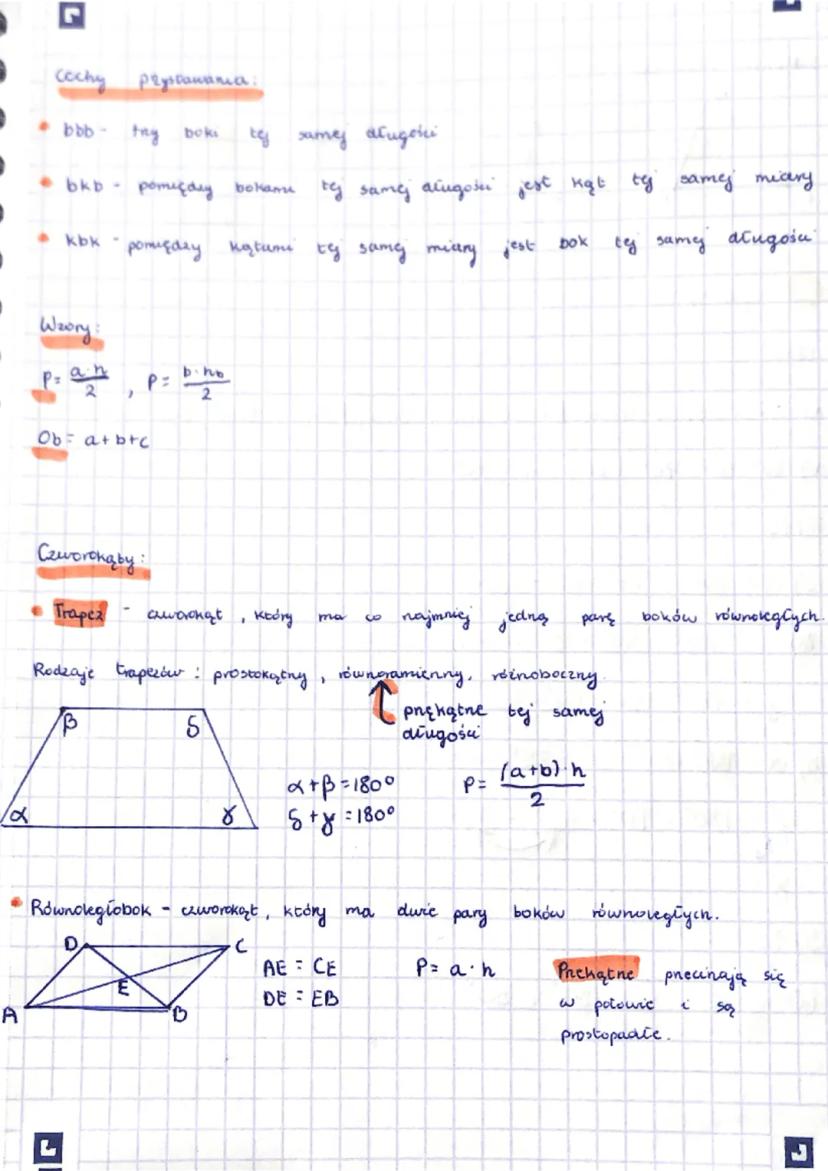 Cechy przystawania:
• bbb - trzy boki tej samej długości
• bkb - pomiędzy bokami tej samej długości jest kąt tej samej miary
• kbk - pomiędzy kątami tej samej miary jest bok tej samej długości
Wzory:
P = a·h/2 , P = b·hb/2
Ob = a+b+c
Czworokąty:
• Trapez - czworokąt, który ma co najmniej jedną parę boków równoległych.
Rodzaje trapezów: prostokątny, równoramienny, różnoboczny.
przekątne tej samej
długości
β δ
α γ
α+β = 180°
δ+γ = 180°
P = (a+b)·h/2
• Równoległobok - czworokąt, który ma dwie pary boków równoległych.
D C
E
A B
AE = CE
DE = EB
P = a·h
Przekątne przecinają się
w połowie i są
prostopadłe.